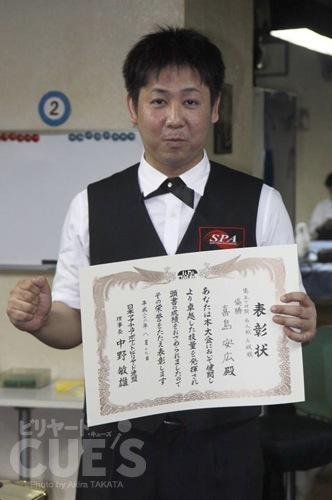 2
SPA
表彰状
優勝
喜島安広殿
あなたは本大会において健闘し
より卓越した技量を発揮され
頭書の成績をおさめられましたので
その栄誉をたたえ表彰します
日本アマチュアポケットビリヤード連盟
理事長 中野敏雄
ビリヤード・キューズ
CUE'S
Photo by Akira TAKATA